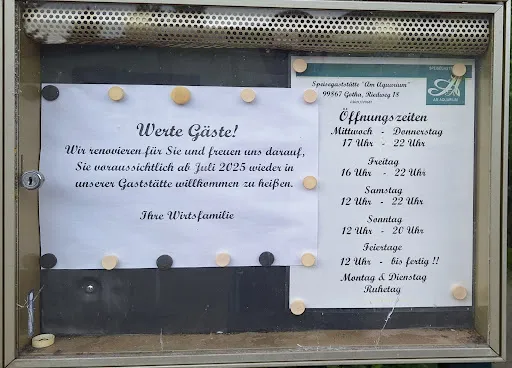 Werte Gäste!
Wir renovieren für Sie und freuen uns darauf,
Sie voraussichtlich ab Juli 2025 wieder in
unserer Gaststätte willkommen zu heißen.
Ihre Wirtsfamilie
Speisegaststätte "Am Aquarium"
99867 Gotha, Riedweg 18
AM AQUARIUM
Öffnungszeiten
Mittwoch - Donnerstag
17 Uhr - 22 Uhr
Freitag
16 Uhr - 22 Uhr
Samstag
12 Uhr - 22 Uhr
Sonntag
12 Uhr - 20 Uhr
Feiertage
12 Uhr - bis fertig !!
Montag & Dienstag
Ruhetag